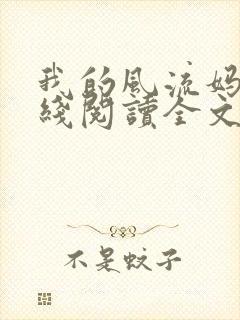 我的风流妈
綫閱讀全文
不是蚊子